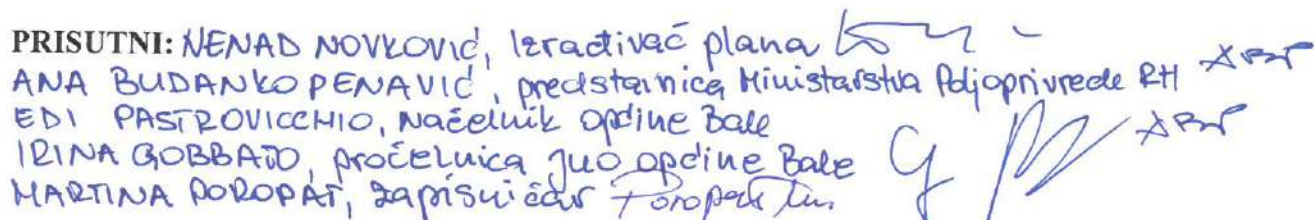 PRISUTNI: NENAD NOVKOVIĆ, Izrađivač plana
ANA BUDANKO PENAVIĆ, predstavnica Ministarstva Poljoprivrede RH
EDI PASTROVICCHIO, Načelnik općine Bale
IRINA GOBBATO, pročelnica JUO općine Bale
MARTINA POROPAT, zapisničar